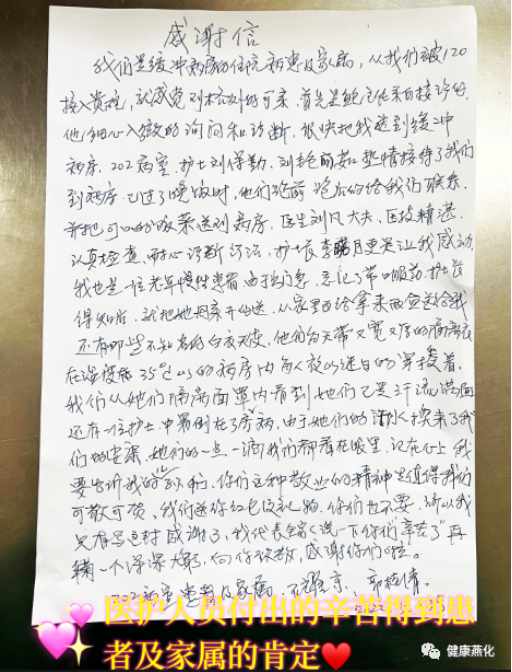 感谢信
我们是缓冲病房的住院病患及家属，从我们被120
接入贵院，就感觉到格外的可亲，首先是鲍主任亲自接诊的
他细心入微的询问和诊断，很快地我送到缓冲
病房，202病室，护士刘保勤，刘艳丽茹 热情接待了我们
到病房已过了晚饭时，他们跑前跑后的给我们联系
并把可口的饭菜送到病房，医生刘凡大夫，医技精湛
认真检查，耐心诊断治法，护士长李曙月更是让我感动
我也是一位老年慢性患者，由于门急，忘记了带口服药，护士长
得知后，就把她母亲开的送，从家里面给拿来两盒送给我
还有哪些不知名的白衣天使，他们每天带又宽又厚的隔离衣
在温度极35℃以上的病房内每人夜以继日的穿梭着，
我们从她们隔离面罩内看到她们已是汗流满面
还有一位护士，中暑倒在了病房，由于她们的汗水换来了我
们的安康，她们的一点一滴我们都看在眼里，记在心上 我
要告诉我的亲人们，你们这种敬业的精神是值得我们
可敬可颂。我们送你红包及礼物，你们也不要，所以我
只有写这封感谢了，我代表全家人说一下你们“辛苦了”再
鞠一个深深大躬，向你致敬，感谢你们啦。
202病室患者及家属
💕医护人员付出的辛苦得到患
者及家属的肯定❤️
健康燕化